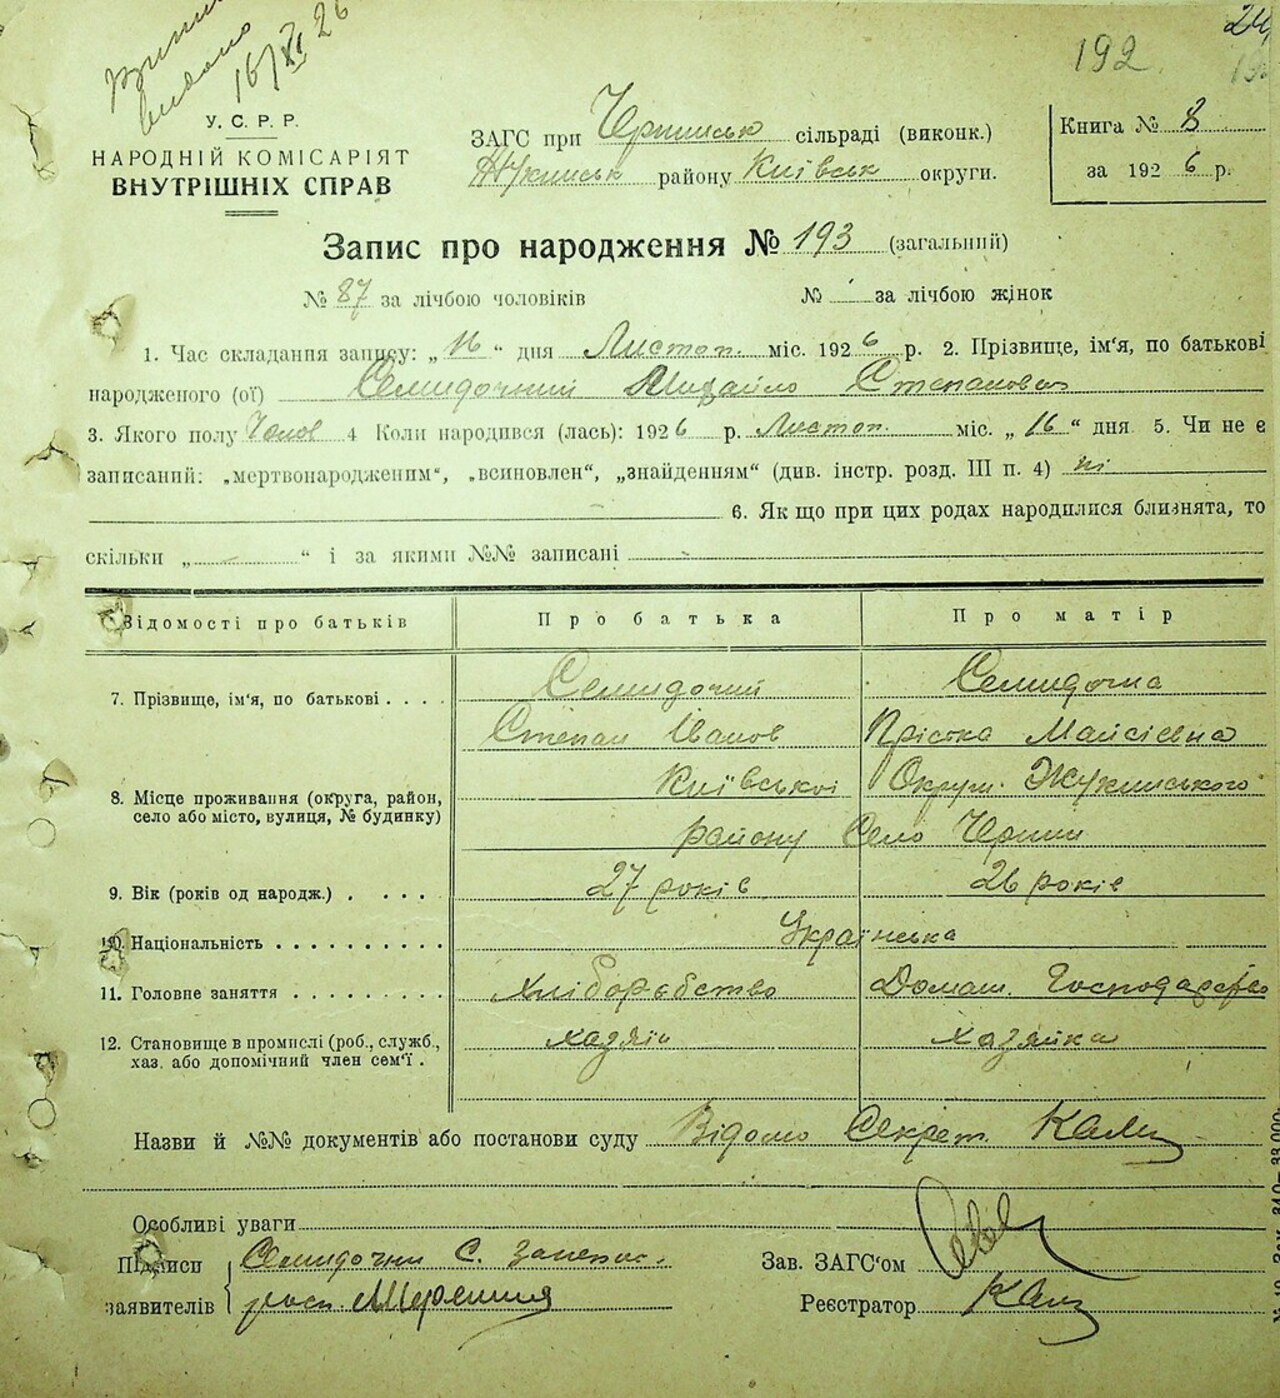 видано
16/XI 26
192
24
У. С. Р. Р.
НАРОДНІЙ КОМІСАРІЯТ
ВНУТРІШНІХ СПРАВ
ЗАГС при Чернинськ сільраді (виконк.)
Жукинськ району Київськ округи.
Книга № 8
за 1926 р.
Запис про народження № 193 (загальний)
№ 87 за лічбою чоловіків № за лічбою жінок
1. Час складання запису: „16“ дня Листоп. міс. 1926 р. 2. Прізвище, ім'я, по батькові
народженого (ої) Семидочний Михайло Степанович
3. Якого полу Чолов 4 Коли народився (лась): 1926 р. Листоп. міс. „16“ дня 5. Чи не є
записаний: „мертвонародженим“, „всиновлен“, „знайденням“ (див. інстр. розд. III п. 4) ні
6. Як що при цих родах народилися близнята, то
скільки „ “ і за якими №№ записані
Відомості про батьків Про батька Про матір
7. Прізвище, ім'я, по батькові . . . . Семидочний Семидочна
Степан Іванов Прістка Майсієвна
8. Місце проживання (округа, район, Київської Округи Жукинського
село або місто, вулиця, № будинку) району Село Чернин
9. Вік (років од народж.) . . . . 27 років 26 років
10. Національність . . . . . . . . . . Українська
11. Головне заняття . . . . . . . . . Хліборобство Домаш. Господарство
12. Становище в промислі (роб., служб., хазяїн хазяйка
хаз. або допомічний член сем'ї .
Назви й №№ документів або постанови суду Відомо Секрет.
Особливі уваги
Підписи Семидочний С. Зав. ЗАГС'ом
заявителів Реєстратор